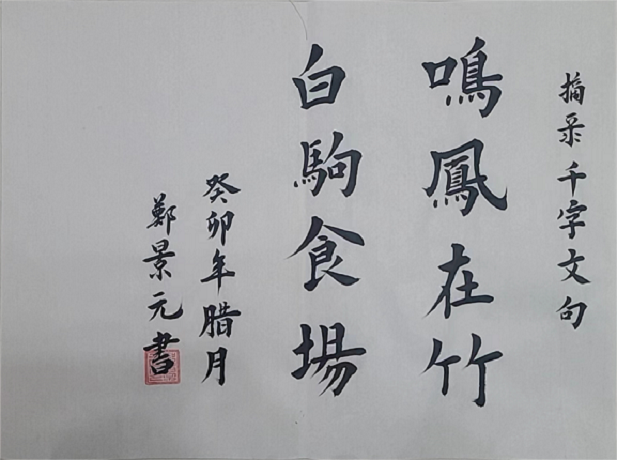 摘采千字文句
鳴鳳在竹
白駒食場
癸卯年腊月
鄭景元書